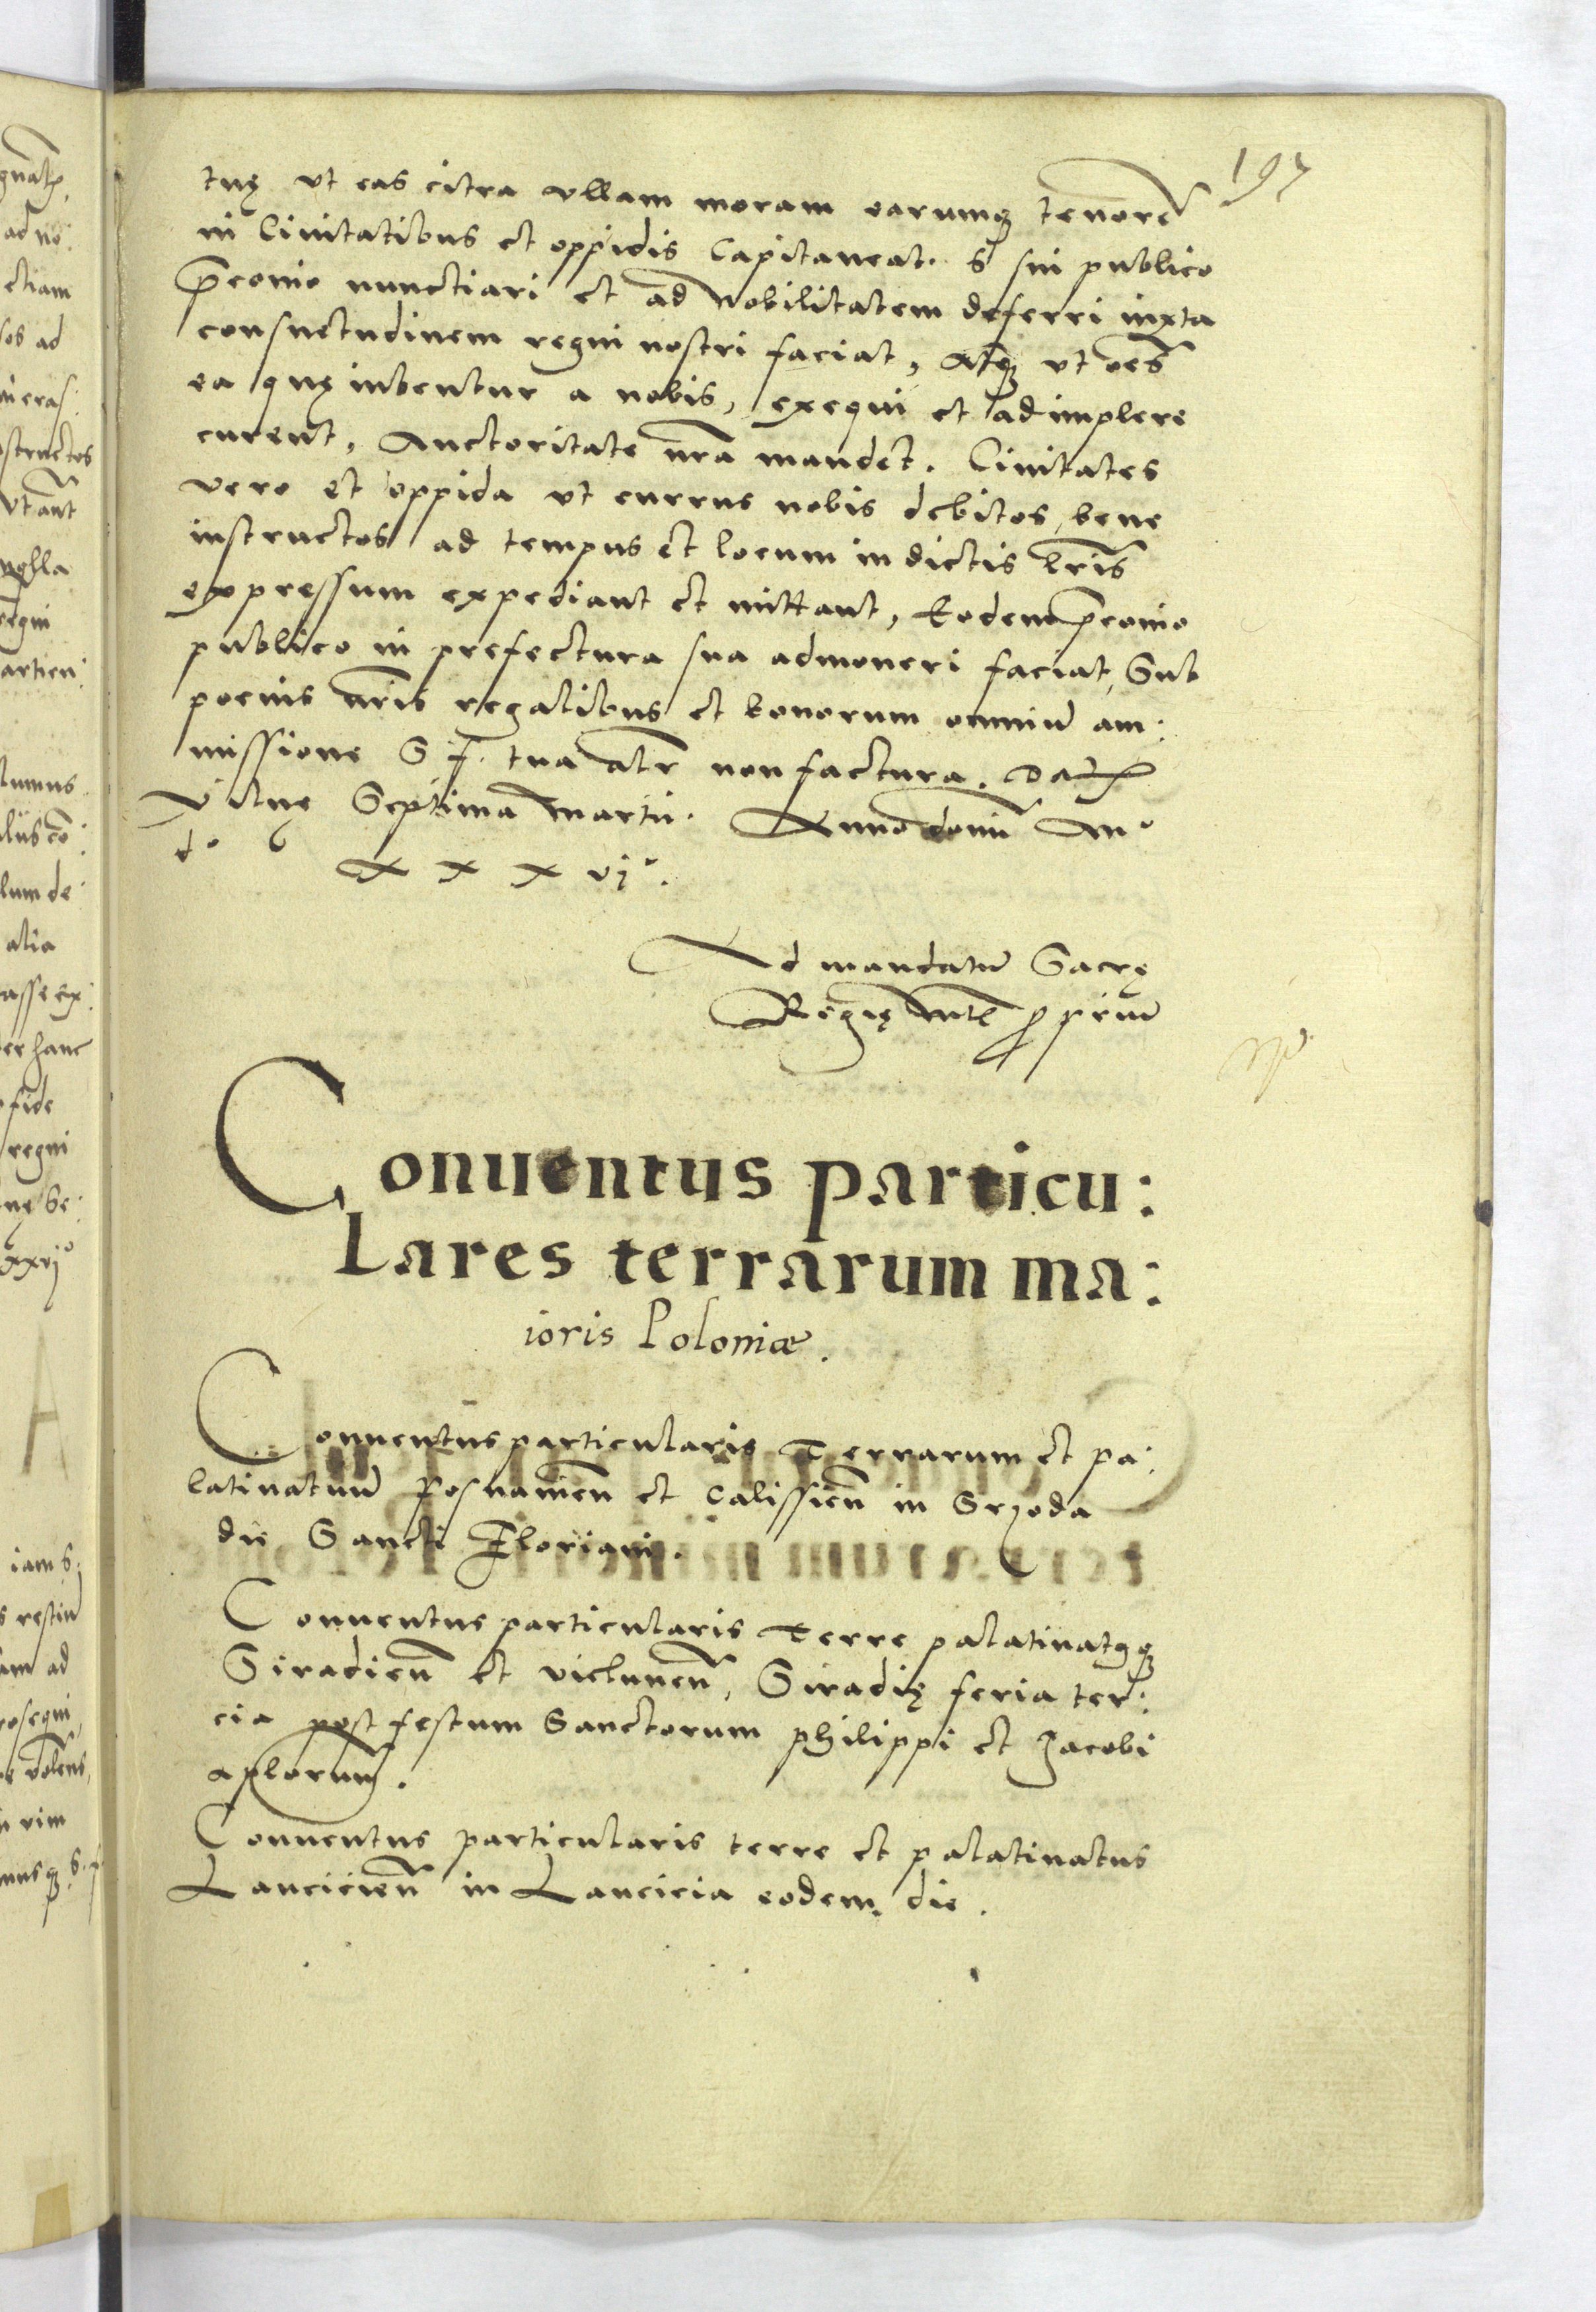 197
tuę vt eas citra vllam moram earumq; tenorē
in Ciuitatibus et oppidis Capitaneat. S sui publico
p̄conio nunctiari et ad Nobilitatem deferri iuxta
consuetudinem regni nostri faciat, Atq; vt oēs
ea quę iubentur a nobis, exequi et adimplere
curent, Auctoritate nrā mandet. Ciuitates
vero et oppida vt currus nobis debitos, bene
instructos ad tempus et locum in dictis lrīs
expressum expediant et mittant, Eodem p̄conio
publico in prefectura sua admoneri faciat, Sub
poenis nrīs regalibus et bonorum omniū am:
missione S f. tua alr̄ non factura. Dat
Vilnę Septima Martii. Anno domī M°
d° 6
xxxvj°.
Ad mandatū Sacrę
Regię mt̄ę ꝓpriū
Conuentus particu:
Lares terrarum ma:
ioris Poloniæ.
Conuentus particularis Terrarum et pa:
latinatuū Posnanień et Calissień in Srzoda
die Sancti Floriani.
Conuentus particularis Terre palatinatusq;
Siradień et vieluneń, Siradię feria ter:
cia post festum Sanctorum philippi et Jacobi
aplorum.
Conuentus particularis terre et palatinatus
Lancicień in Lancicia eodem die.